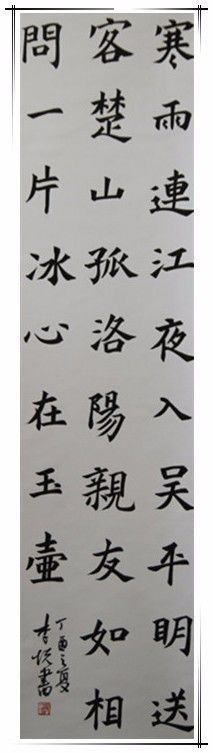 寒雨連江夜入吳平明送
客楚山孤洛陽親友如相
問一片冰心在玉壺
丁酉之夏
李書